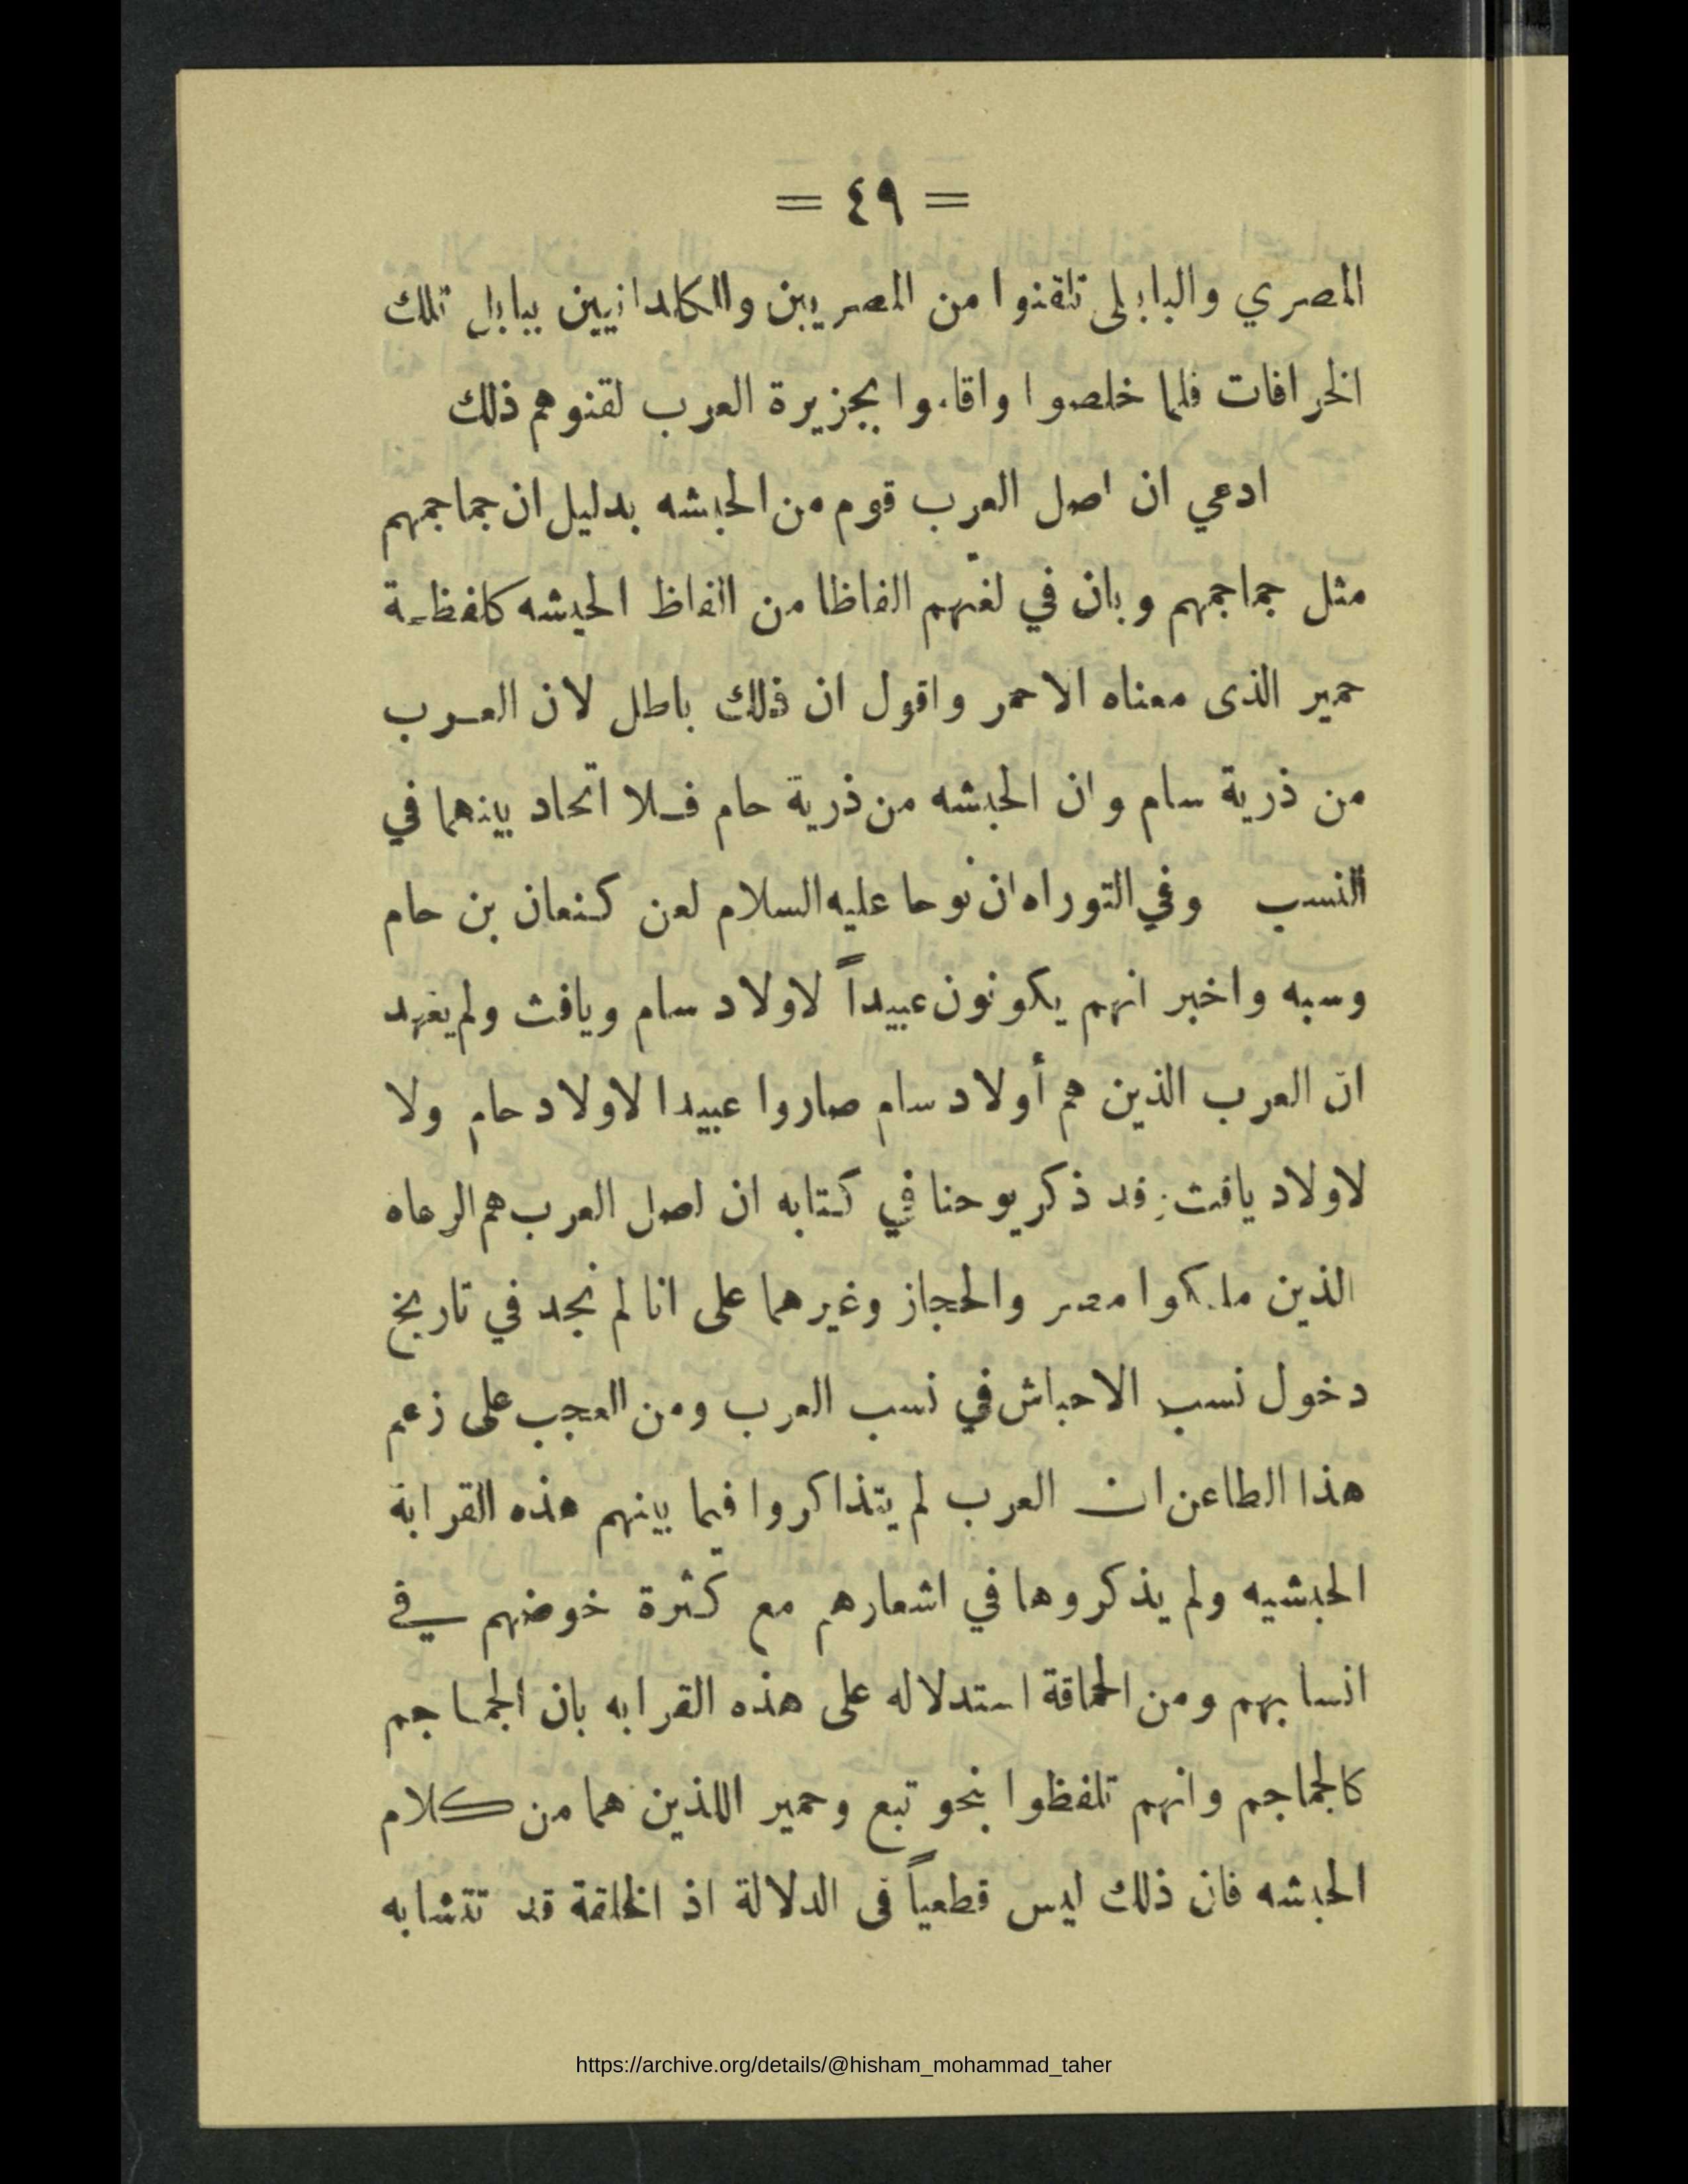 = ٤٩ =
المصري والبابلى تلقنوا من المصريين والكلدانيين ببابل تلك
الخرافات فلما خلصوا واقاموا بجزيرة العرب لقنوهم ذلك
ادعي ان اصل العرب قوم من الحبشه بدليل ان جماجمهم
مثل جماجمهم وبان في لغتهم الفاظا من الفاظ الحبشه كلفظـة
حمير الذى معناه الاحمر واقول ان ذلك باطل لان العـرب
من ذرية سام وان الحبشه من ذرية حام فـلا اتحاد بينهما في
النسب وفي التوراه ان نوحا عليه السلام لعن كنعان بن حام
وسبه واخبر انهم يكونون عبيداً لاولاد سام ويافث ولم يعهد
ان العرب الذين هم أولاد سام صاروا عبيدا لاولاد حام ولا
لاولاد يافث قد ذكر يوحنا في كتابه ان اصل العرب هم الرعاه
الذين ملكوا مصر والحجاز وغيرهما على انا لم نجد في تاريخ
دخول نسب الاحباش في نسب العرب ومن العجب على زعم
هذا الطاعن ان العرب لم يتذاكروا فيما بينهم هذه القرابة
الحبشيه ولم يذكروها في اشعارهم مع كثرة خوضهم في
انسابهم ومن الحماقة استدلاله على هذه القرابه بان الجماجم
كالجماجم وانهم تلفظوا بنحو تبع وحمير اللذين هما من كلام
الحبشه فان ذلك ليس قطعياً فى الدلالة اذ الخلقة قد تتشابه
https://archive.org/details/@hisham_mohammad_taher